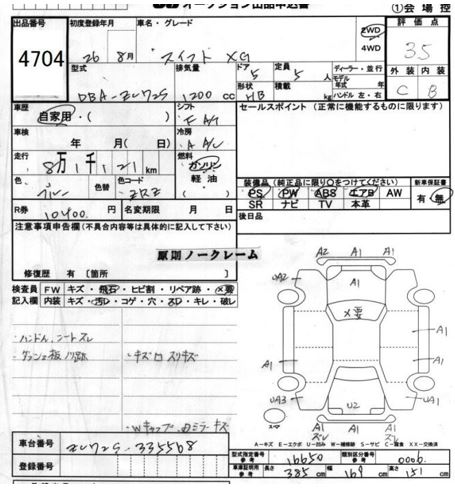 オークション出品申込書 ①会場控
出品番号 初度登録年月 車名・グレード 2WD 4WD 評価点
4704 26年 8月 スイフト XG 3.5
型式 排気量 ドア 定員 ディーラー・並行
DBA-ZC72S 1200 cc 5 5
形状 積載 モデル 年式 年 外装 内装
HB ハンドル 左・右 C B
車歴 自家用・( ) シフト FAT セールスポイント (正常に機能するものに限ります)
車検 年 月( 日) 冷房 A/C
走行 8万1千121km 燃料 ガソリン 軽油
色 ブルー 色替 色コード
装備品(純正品に限り○をつけてください) 新車保証書
PS PW ABS エアB AW 有・無
SR ナビ TV 本革
R券 10400円 名変期限 月 日 後日品
注意事項申告欄(不具合内容等は具体的に記入して下さい)
原則ノークレーム
修復歴 有 [箇所 ]
検査員 FW キズ・飛石・ヒビ割・リペア跡・X要
記入欄 内装 キズ・汚レ・コゲ・穴・スレ・キレ・破レ
ハンドル、シートスレ
ダッシュ板ノリ跡 キズ□スリキズ
Wキャップ、
ミラーキズ
A2 A1 A1
UA2 A1 A1
X要
A1 A1 A1
UA3 U2 UA1
A1 A1 A1
スレ スレ
スマ
A=キズ E=エクボ U=凹み W=補修跡 S=サビ C=腐食 XX=交換済
車台番号 ZC72S-335568
登録番号
型式指定番号 参考 16650 類別区分番号 参考 0006
車庫証明用 参考 長さ 385 cm 幅 169 cm 高さ 151 cm